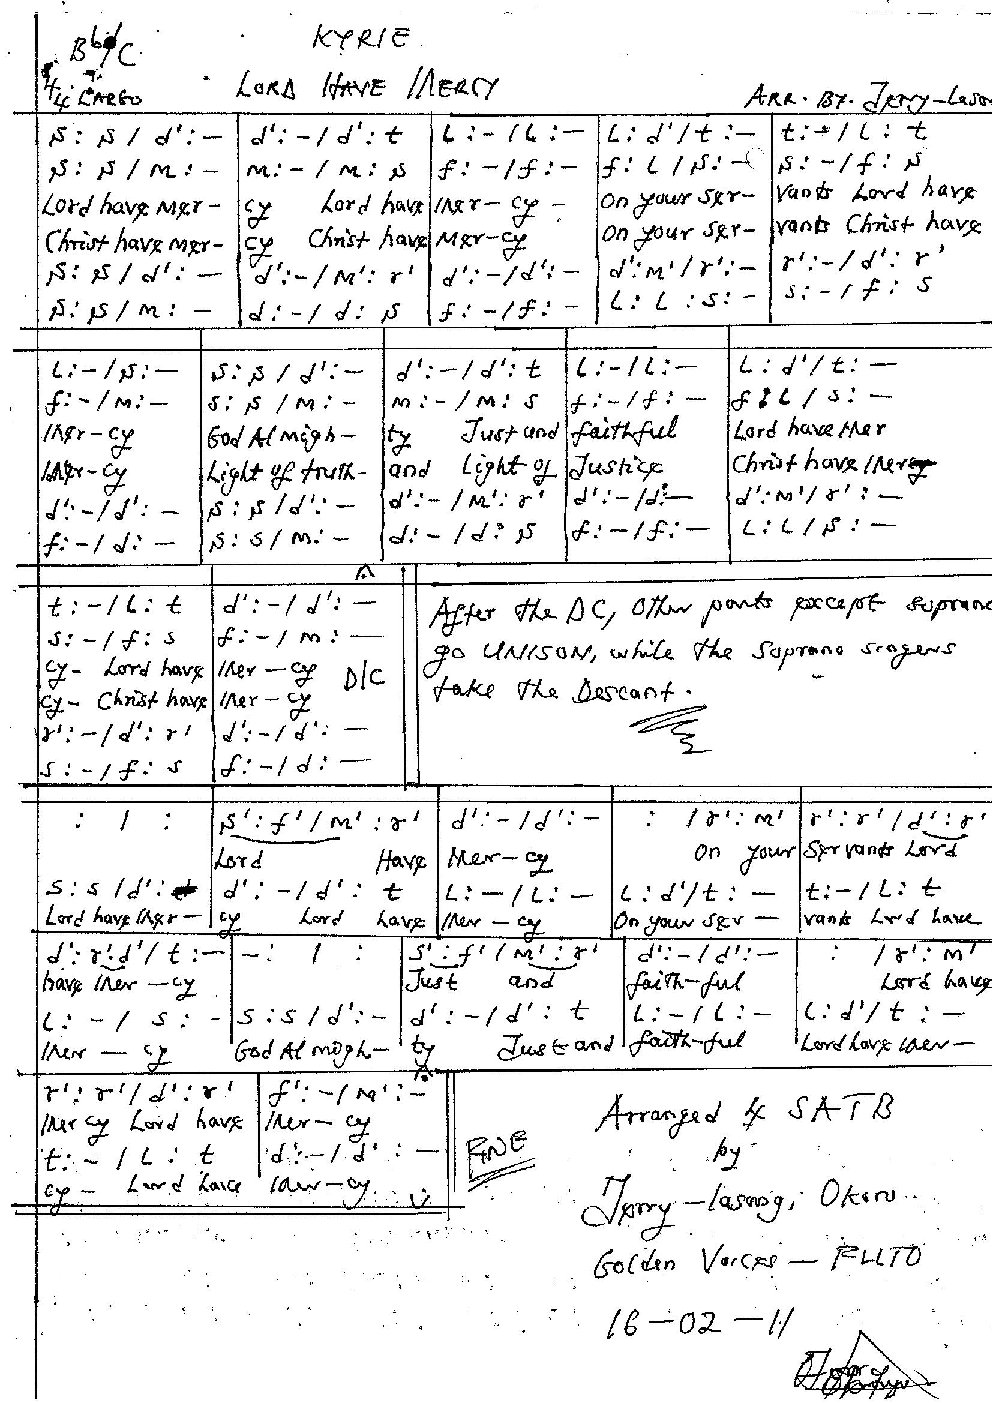 B♭/C
KYRIE
4/4 LARGO
LORD HAVE MERCY
ARR. BY. Jerry-
s: s / d': — | d': - / d': t | l: - / l: — | l: d' / t: — | t: - / l: t
s: s / m: - | m: - / m: s | f: - / f: - | f: l / s: - | s: - / f: s
Lord have Mer- | cy Lord have | Mer-cy - | on your ser- | vants Lord have
Christ have mer- | cy Christ have | Mer-cy | on your ser- | vants Christ have
s: s / d': — | d': - / m': r' | d': - / d': - | d': m' / r': - | r': - / d': r'
s: s / m: - | d: - / d: s | f: - / f: - | l: l : s: - | s: - / f: s
l: - / s: — | s: s / d': — | d': - / d': t | l: - / l: — | l: d' / t: —
f: - / m: - | s: s / m: - | m: - / m: s | f: - / f: — | f: l / s: —
Mer-cy | God Al migh- | ty Just and | faithful | Lord have Mer
Mer-cy | Light of truth- | and light of | Justice | Christ have Mercy
d': - / d': — | s: s / d': — | d': - / m': r' | d': - / d': — | d': m' / r': —
f: - / d: — | s: s / m: - | d: - / d: s | f: - / f: — | l: l / s: —
t: - / l: t | d': - / d': —
s: - / f: s | f: - / m: —
cy- Lord have | Mer-cy D/C
cy- Christ have | Mer-cy
r': - / d': r' | d': - / d': —
s: - / f: s | f: - / d: —
After the DC, Other parts except soprano
go UNISON, while the Soprano singers
take the Descant.
: / : | s': f' / m': r' | d': - / d': - | : / r': m' | r': r' / d': r'
Lord Have | Mer-cy | On your | Servants Lord
s: s / d': | d': - / d': t | l: — / l: — | l: d' / t: — | t: - / l: t
Lord have Mer- | cy Lord have | Mer-cy | On your ser — | vants Lord have
d': r': d' / t: — | -: / : | s': f' / m': r' | d': - / d': — | : / r': m'
have Mer-cy | Just and | faith-ful | Lord have
l: - / s: - | s: s / d': - | d': - / d': t | l: - / l: - | l: d' / t: —
Mer — cy | God Al migh- | ty Just and | faith-ful | Lord have Mer-
r': r' / d': r' | f': - / m': -
Mer cy Lord have | Mer-cy
t: - / l: t | d': - / d': —
cy- Lord have | Mer-cy
FINE
Arranged 4 SATB
by
Jerry - Okoro
Golden Voices —
16-02-11